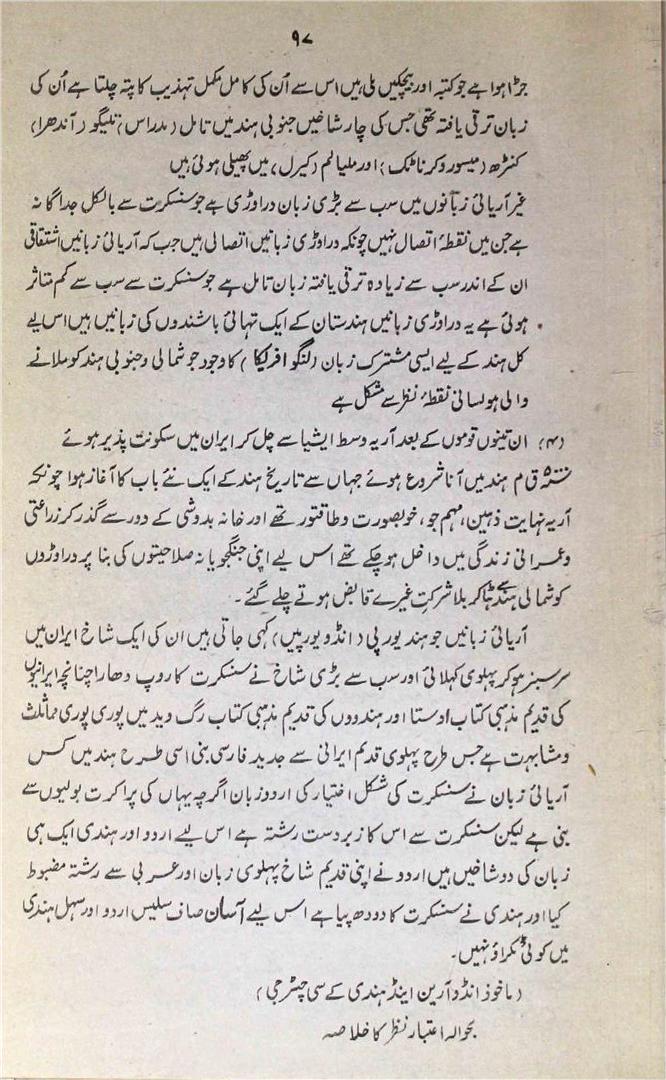 ۹۷
جڑا ہوا ہے جو کتبہ اور بیچکیں ملی ہیں اس سے اُن کی کامل مکمل تہذیب کا پتہ چلتا ہے اُن کی
زبان ترقی یافتہ تھی جس کی چار شاخیں جنوبی ہند میں تامل (مدراس) تلیگو (آندھرا)
کنڑھ (میسور و کرناٹک) اور ملیالم (کیرل) میں پھیلی ہوئی ہیں
غیر آریائی زبانوں میں سب سے بڑی زبان دراوڑی ہے جو سنسکرت سے بالکل جداگانہ
ہے جن میں نقطۂ اتصال نہیں چونکہ دراوڑی زبانیں اتصالی ہیں جب کہ آریائی زبانیں اشتقاقی
ان کے اندر سب سے زیادہ ترقی یافتہ زبان تامل ہے جو سنسکرت سے سب سے کم متاثر
ہوئی ہے یہ دراوڑی زبانیں ہندستان کے ایک تہائی باشندوں کی زبانیں ہیں اس لیے
کل ہند کے لیے ایسی مشترک زبان (لنگوافریکا) کا وجود جو شمالی و جنوبی ہند کو ملانے
والی ہو لسانی نقطۂ نظر سے مشکل ہے
(۴) ان تینوں قوموں کے بعد آریہ وسط ایشیا سے چل کر ایران میں سکونت پذیر ہوئے
ق م ہند میں آنا شروع ہوئے جہاں سے تاریخ ہند کے ایک نئے باب کا آغاز ہوا چونکہ
آریہ نہایت ذہین، مہم جو، خوبصورت و طاقتور تھے اور خانہ بدوشی کے دور سے گذر کر زراعتی
و عمرانی زندگی میں داخل ہو چکے تھے اس لیے اپنی جنگجویانہ صلاحیتوں کی بنا پر دراوڑوں
کو شمالی ہند سے ہٹا کر بلا شرکت غیرے قابض ہوتے چلے گئے۔
آریائی زبانیں جو ہند یورپی (انڈو یورپیں) کہی جاتی ہیں ان کی ایک شاخ ایران میں
سرسبز ہو کر پہلوی کہلائی اور سب سے بڑی شاخ نے سنسکرت کا روپ دھارا چنانچہ ایرانیوں
کی قدیم مذہبی کتاب اوستا اور ہندووں کی قدیم مذہبی کتاب رگ وید میں پوری پوری مماثلت
و مشابہت ہے جس طرح پہلوی قدیم ایرانی سے جدید فارسی بنی اسی طرح ہند میں کس
آریائی زبان نے سنسکرت کی شکل اختیار کی اردو زبان اگرچہ یہاں کی پراکرت بولیوں سے
بنی ہے لیکن سنسکرت سے اس کا زبردست رشتہ ہے اس لیے اردو اور ہندی ایک ہی
زبان کی دو شاخیں ہیں اردو نے اپنی قدیم شاخ پہلوی زبان اور عربی سے رشتہ مضبوط
کیا اور ہندی نے سنسکرت کا دودھ پیا ہے اس لیے آسان صاف سلیس اردو اور سہل ہندی
میں کوئی ٹکراؤ نہیں۔
(ماخوذ انڈو آرین اینڈ ہندی کے سی چٹرجی)
بحوالہ اعتبار نظر کا خلاصہ